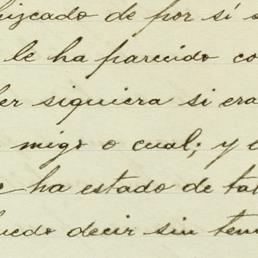 de por sí
le ha parecido co
siquiera si era
migo o cual; y
ha estado de tal
decir sin tem